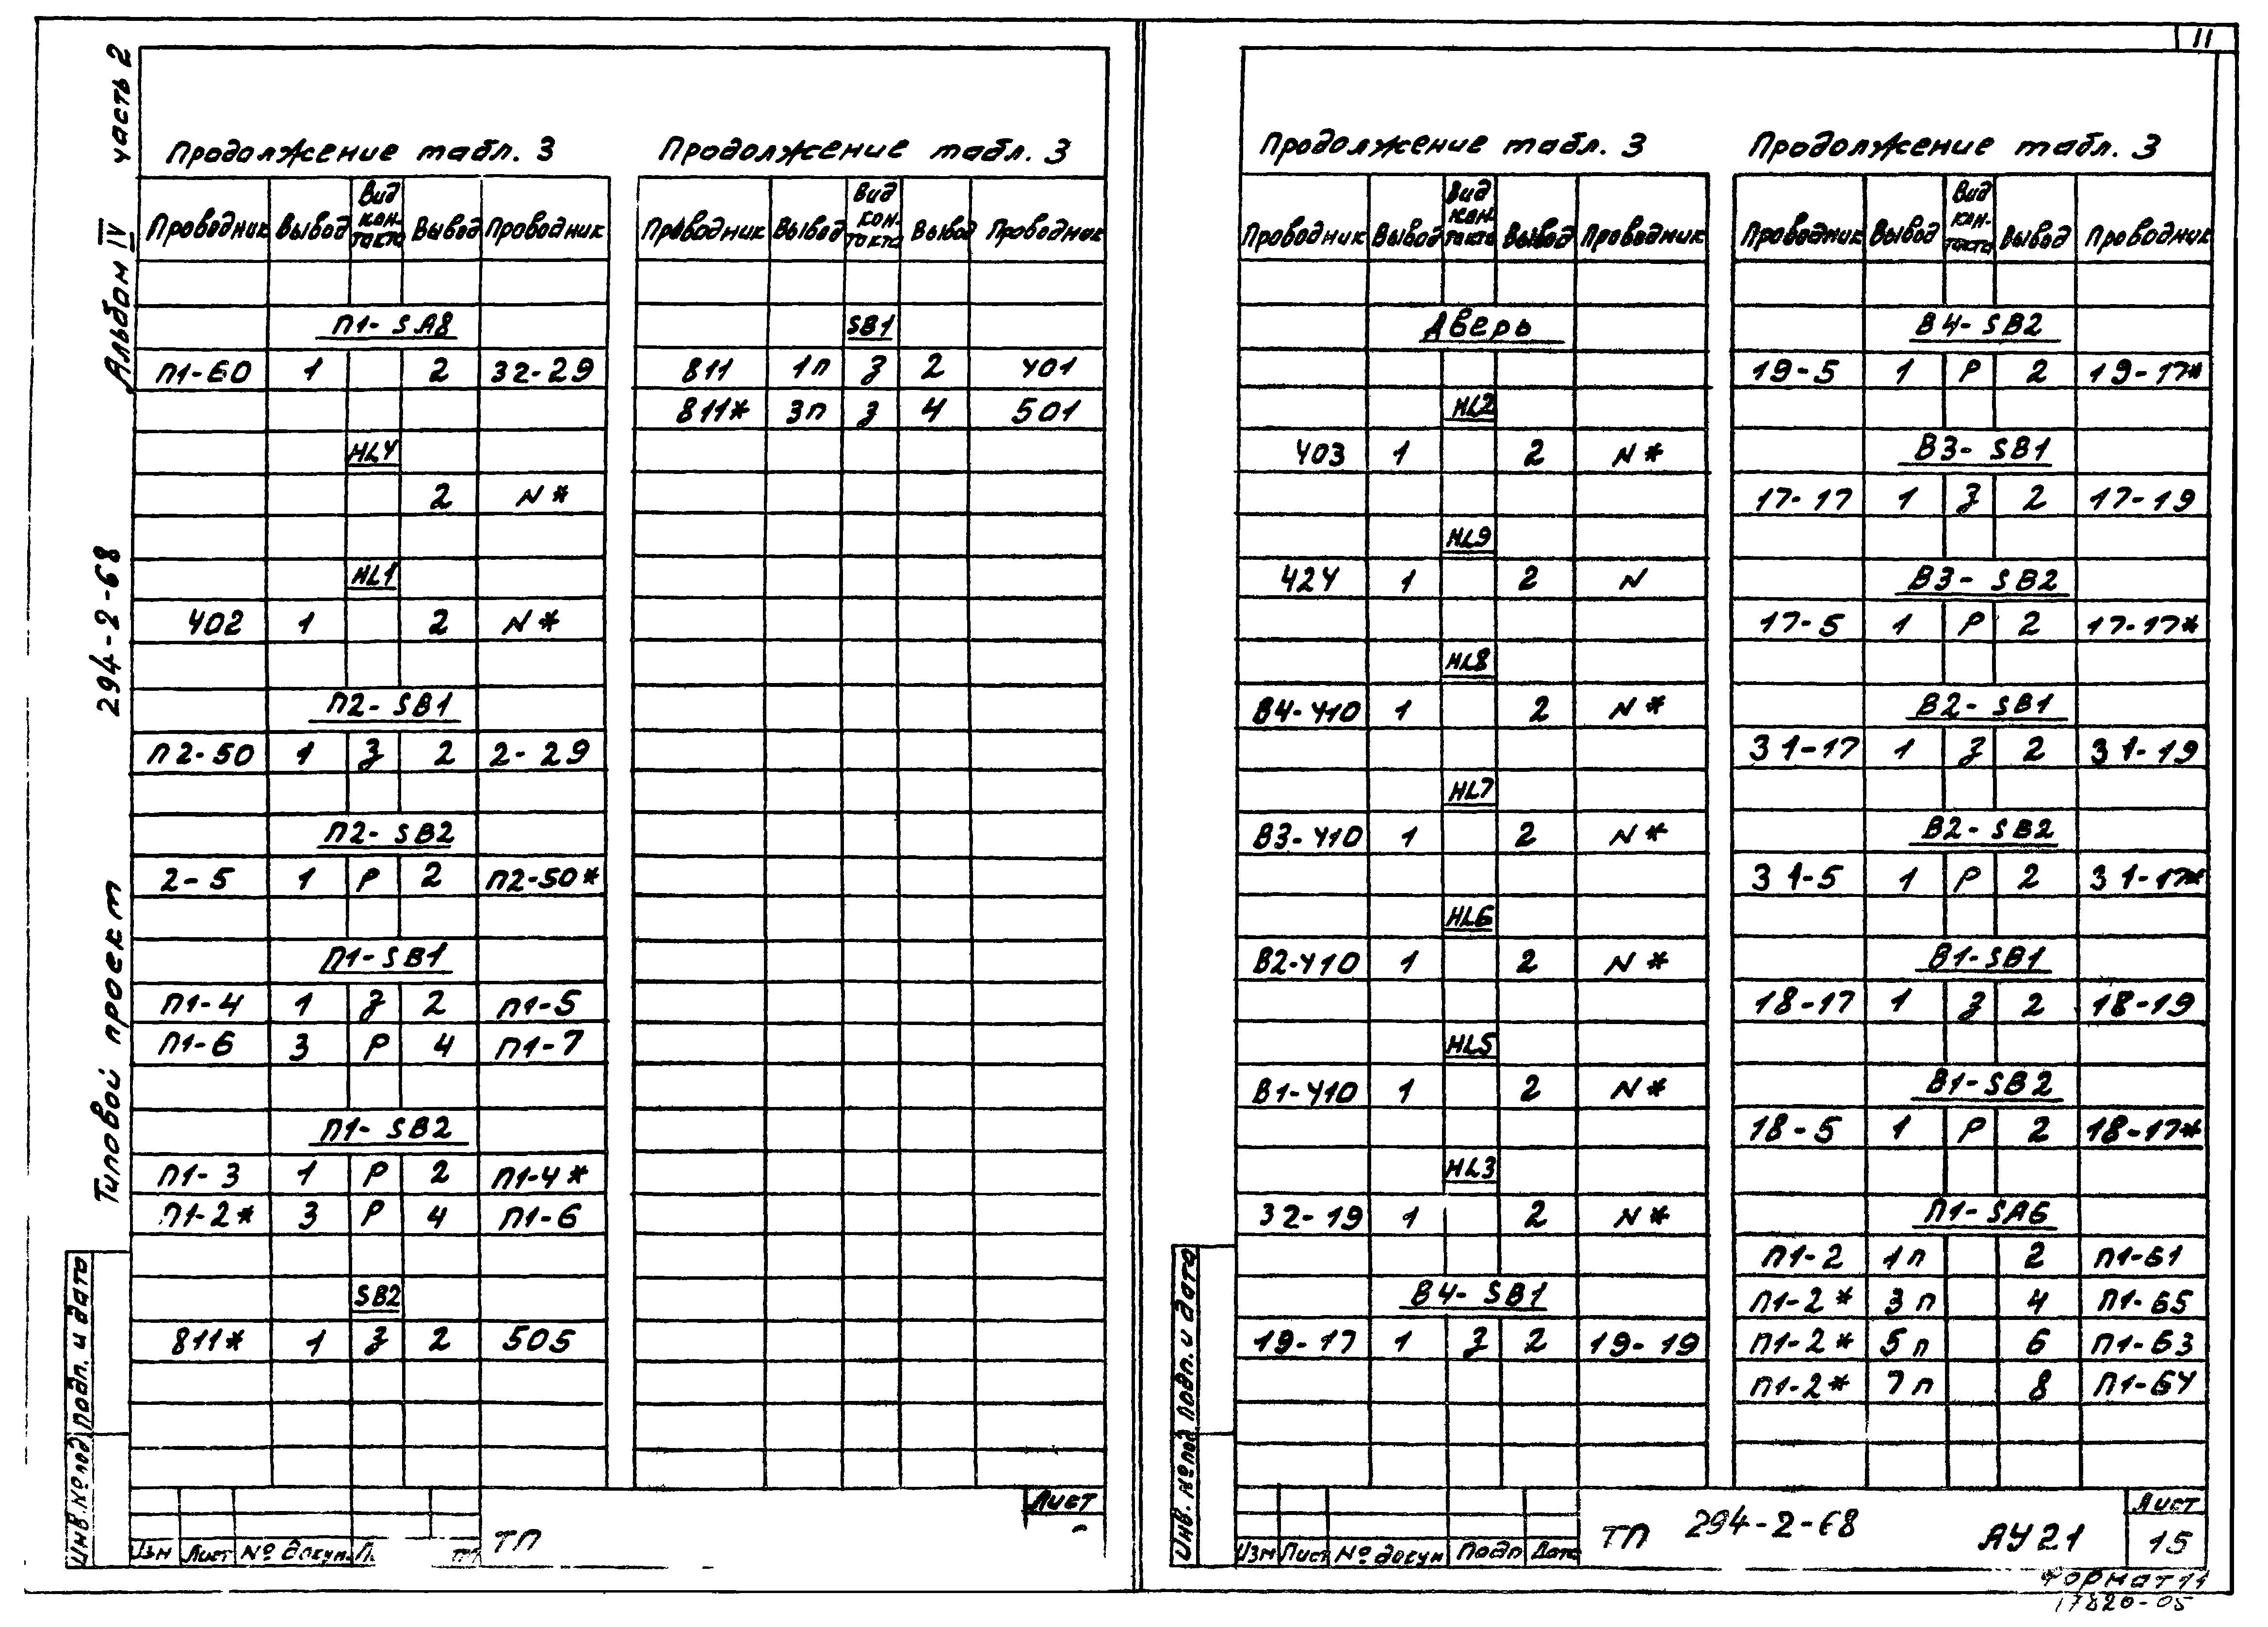 11
Альбом IV часть 2
294-2-68
Типовой проект
Продолжение табл. 3
Проводник Вывод Вид кон-такта Вывод Проводник
П1-SA8
П1-60 1 2 32-29
HL4
2 N*
HL1
402 1 2 N*
П2-SB1
П2-50 1 З 2 2-29
П2-SB2
2-5 1 Р 2 П2-50*
П1-SB1
П1-4 1 З 2 П1-5
П1-6 3 Р 4 П1-7
П1-SB2
П1-3 1 Р 2 П1-4*
П1-2* 3 Р 4 П1-6
SB2
811* 1 З 2 505
Продолжение табл. 3
Проводник Вывод Вид кон-такта Вывод Проводник
SB1
811 1п З 2 401
811* 3п З 4 501
Инв. № под Подп. и дата
Изм Лист № докум
ТП
Лист
Продолжение табл. 3
Проводник Вывод Вид кон-такта Вывод Проводник
Дверь
HL2
403 1 2 N*
HL9
424 1 2 N
HL8
В4-410 1 2 N*
HL7
В3-410 1 2 N*
HL6
В2-410 1 2 N*
HL5
В1-410 1 2 N*
HL3
32-19 1 2 N*
В4-SB1
19-17 1 З 2 19-19
Продолжение табл. 3
Проводник Вывод Вид кон-такта Вывод Проводник
В4-SB2
19-5 1 Р 2 19-17*
В3-SB1
17-17 1 З 2 17-19
В3-SB2
17-5 1 Р 2 17-17*
В2-SB1
31-17 1 З 2 31-19
В2-SB2
31-5 1 Р 2 31-17*
В1-SB1
18-17 1 З 2 18-19
В1-SB2
18-5 1 Р 2 18-17*
П1-SA6
П1-2 1п 2 П1-61
П1-2* 3п 4 П1-65
П1-2* 5п 6 П1-63
П1-2* 7п 8 П1-64
Инв. № под Подп. и дата
Изм Лист № докум Подп Дата
ТП 294-2-68 АУ21
Лист
15
Формат 11
17820-05